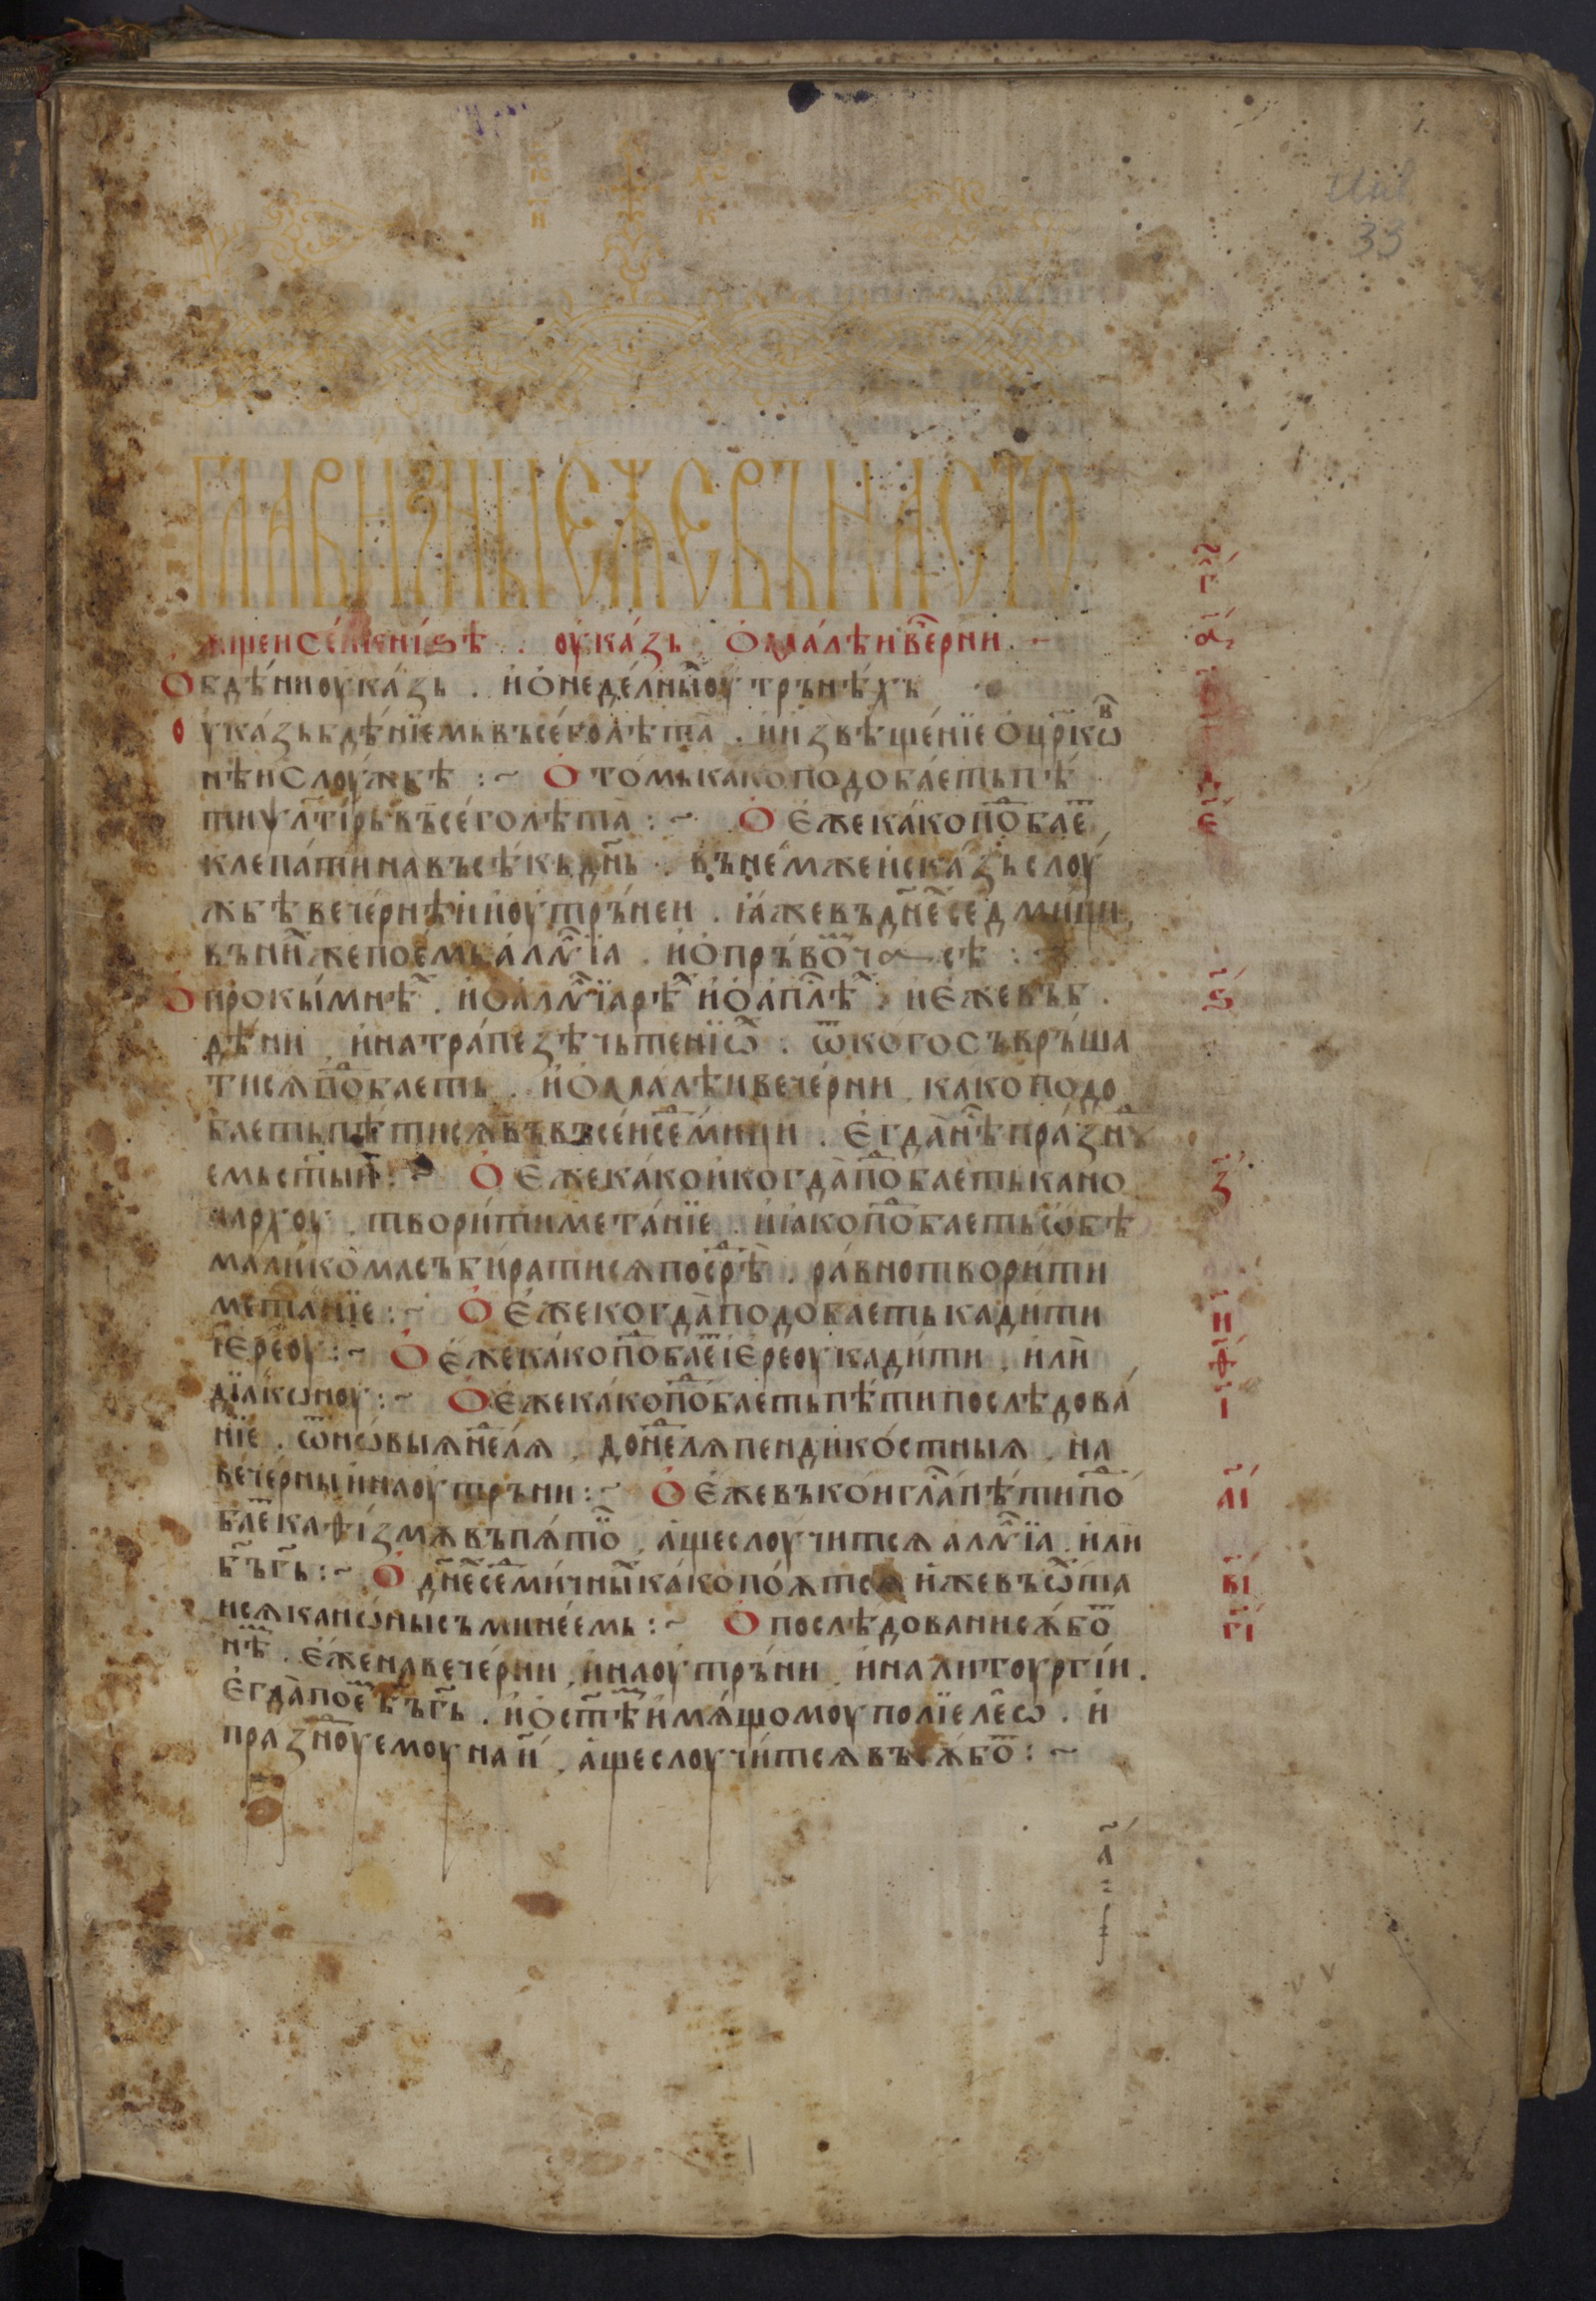 Инв
33
главизныежевънасто
ꙗщенсе́мтѷпі́цѣ . оука́зь , О҆ма́лѣивⷱ҇е́рни . ~
О҆бдѣ́нноука́зь . и҆О҆неде́лныⷯоу҆трънѣ́хъ
оука́зьбдѣ́нїемьвъсего̀лѣта̀ . и҆и҆звѣще́нїеО҆цр҃кѡⷡ
нѣислоу́жбѣ : ~ О҆ то́мькакоподоба́етьпѣ́
тиѱл҃ти́рьвъсего̀лѣта̀ : ~ О҆ Е҆жека́копоⷣбаеⷮ
клепа́тинавъсѣ́къдн҃ь . вънемжеиска́зьслоу́
жбѣвече́рнѣииоу҆тръ́нен . ꙗ҆́жевъдн҃е́хседми́ци ,
въниⷯжепое́мьа҆лⷧ҇їа . и҆О҆пръ́воⷨчасѣ : ~
О҆прокы́мнѣⷯ . и҆О҆а҆лⷧ҇їарѣⷯи҆О҆а҆пⷭ҇лѣⷯ . иЕ҆жевъб .
дѣ́ни , и҆натра́пезѣчьтенїѡⷯ . ѿкогосъвръ́ша
тисѧпоⷣбаеть . и҆О҆ма́лѣивече́рни , какоподо
баетьпѣ́тисѧвъвъсе́исеⷣми́ци . Е҆гда̀нⷭ҇ѣпра́зⷣнꙋ
емьст҃ыи҆ : ~ О҆ Е҆жека́кои҆когда̀поⷣбае́тькано
нархоу . твори́тимета́нїе . и҆ꙗкопоⷣбаетьѡ҆бѣ
ма́ликомасъбира́тисѧпосреⷣѣ̀ . ра́внотвори́ти
мета́нїе : ~ О҆ Е҆́жекогда̀подобае́тькади́ти
їЕ҆ре́оу : ~ О҆ Е҆́жека́копоⷣбаеⷮїЕ҆реоукади́ти , и҆лѝ
дїа́кѡноу : ~ О҆Е҆жека́копоⷣбаетьпѣ́типослѣдова́
нїе . ѿнѡ́выѧнеⷣлѧ , донеⷣлѧпендико́стныѧ . на
вече́рныи҆наоу́тръни : ~ О҆ Е҆́жевъко́игла҃пѣ́типоⷣ
баеⷮкаѳі́змѧвъпѧтоⷦ , а҆щеслоучитсѧалⷧ҇їа . и҆лѝ
бъг҃ь : ~ О҆ дн҃е́хсеⷣми́чныⷯка́копо́ѫтсѧи҆жевъѡⷯта
исѧкано́нысъмине́емь : ~ О҆ послѣдованисѫ́боⷮ
нⷨѣ . Е҆́женавече́рни , и҆наоу҆тръ́ни , и҆налитоургі́и .
Е҆гда̀поеⷮбъг҃ь . и҆О҆ст҃ѣⷨи҆мѧ́щомоуполїеле́ѡ . и҆
празⷣноуемоунаⷩ҇и҆ . а҆щеслоучи́тсѧвъсѫ́боⷮ : ~
г҃
а҃
є҃
ѕ҃
з҃
и҃
ѳ҃
і҃
аі҃
ві҃
гі҃
а҃